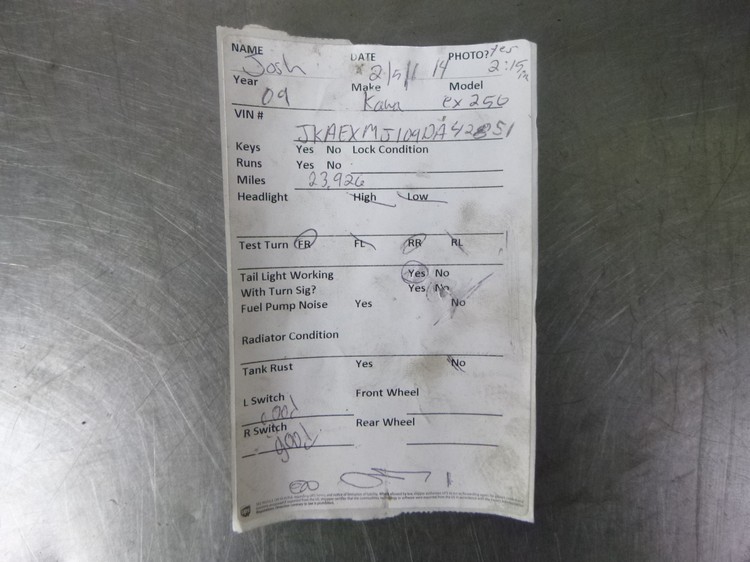 NAME Josh DATE 2/5/14 PHOTO? Yes
2:15
Year 09 Make Kawa Model ex 250
VIN # JKAEXMJ109DA42851
Keys Yes No Lock Condition
Runs Yes No
Miles 23,926
Headlight High Low
Test Turn FR FL RR RL
Tail Light Working Yes No
With Turn Sig? Yes No
Fuel Pump Noise Yes No
Radiator Condition
Tank Rust Yes No
L Switch good Front Wheel
R Switch good Rear Wheel